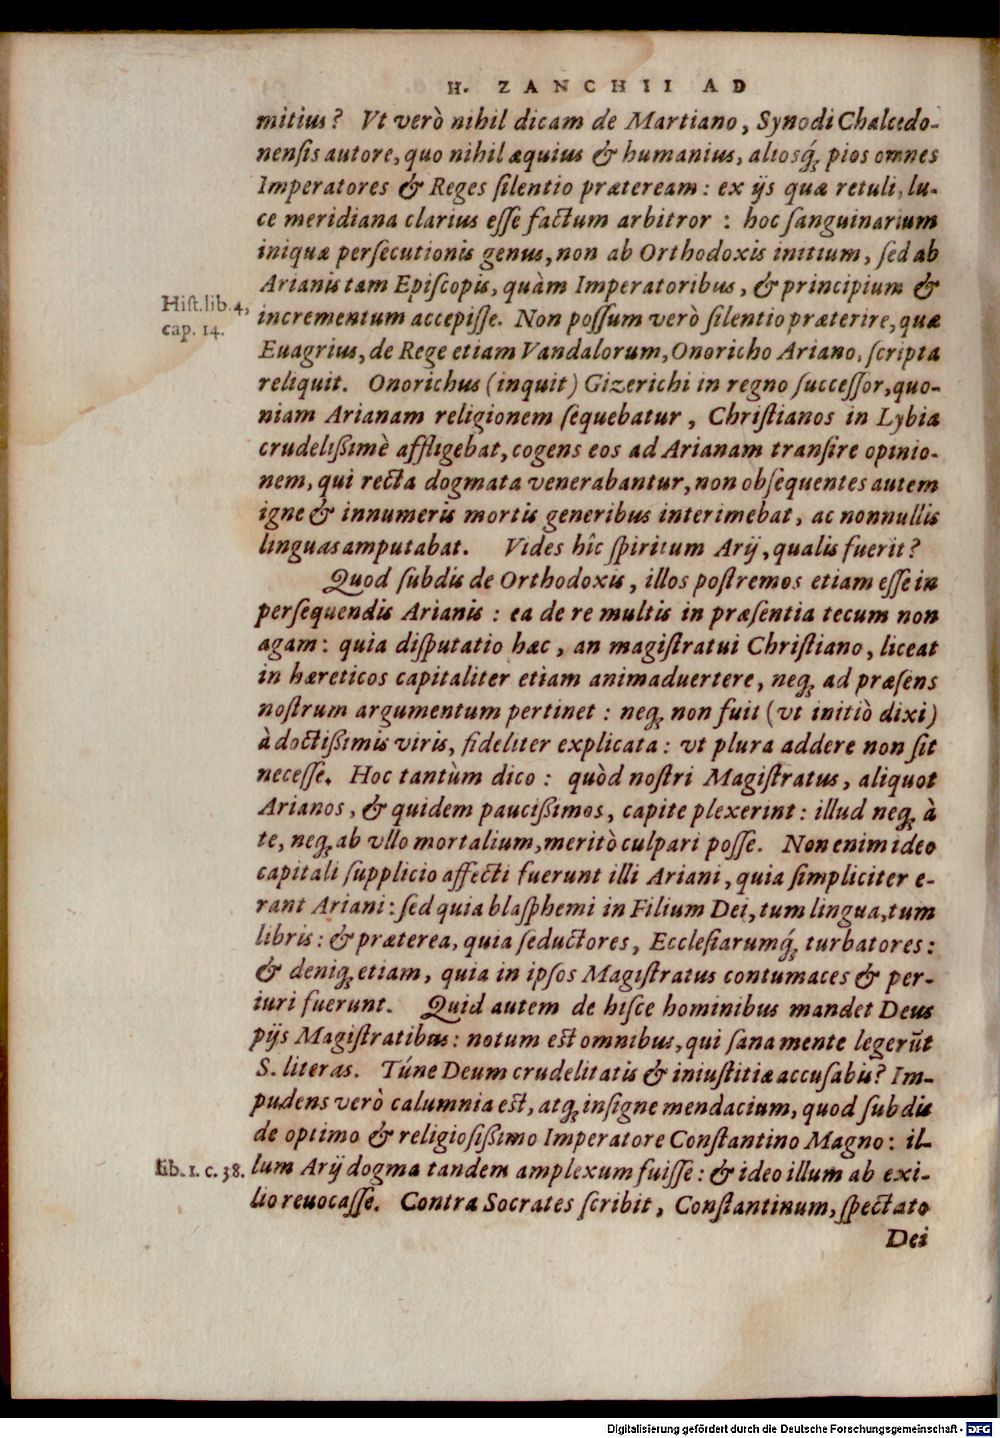 H. ZANCHII AD
mitius? Vt verò nihil dicam de Martiano, Synodi Chalcedo-
nenſis autore, quo nihil æquius & humanius, aliosq́; pios omnes
Imperatores & Reges ſilentio præteream: ex ijs quæ retuli, lu-
ce meridiana clarius eſſe factum arbitror: hoc ſanguinarium
iniquæ perſecutionis genus, non ab Orthodoxis initium, ſed ab
Arianis tam Epiſcopis, quàm Imperatoribus, & principium &
Hiſt. lib. 4,
cap. 14.
incrementum accepiſſe. Non poſſum verò ſilentio præterire, quæ
Euagrius, de Rege etiam Vandalorum, Onoricho Ariano, ſcripta
reliquit. Onorichus (inquit) Gizerichi in regno ſucceſſor, quo-
niam Arianam religionem ſequebatur, Chriſtianos in Lybia
crudelißimè affligebat, cogens eos ad Arianam tranſire opinio-
nem, qui recta dogmata venerabantur, non obſequentes autem
igne & innumeris mortis generibus interimebat, ac nonnullis
linguas amputabat. Vides hîc ſpiritum Arij, qualis fuerit?
Quod ſubdis de Orthodoxis, illos poſtremos etiam eſſe in
perſequendis Arianis: ea de re multis in præſentia tecum non
agam: quia diſputatio hæc, an magiſtratui Chriſtiano, liceat
in hæreticos capitaliter etiam animaduertere, neq; ad præſens
noſtrum argumentum pertinet: neq; non fuit (vt initiò dixi)
à doctißimis viris, fideliter explicata: vt plura addere non ſit
neceſſe. Hoc tantùm dico: quòd noſtri Magiſtratus, aliquot
Arianos, & quidem paucißimos, capite plexerint: illud neq; à
te, neq; ab vllo mortalium, meritò culpari poſſe. Non enim ideo
capitali ſupplicio affecti fuerunt illi Ariani, quia ſimpliciter e-
rant Ariani: ſed quia blaſphemi in Filium Dei, tum lingua, tum
libris: & præterea, quia ſeductores, Eccleſiarumq́; turbatores:
& deniq; etiam, quia in ipſos Magiſtratus contumaces & per-
iuri fuerunt. Quid autem de hiſce hominibus mandet Deus
pijs Magiſtratibus: notum est omnibus, qui ſana mente legerūt
S. literas. Túne Deum crudelitatis & iniuſtitiæ accuſabis? Im-
pudens verò calumnia est, atq; inſigne mendacium, quod ſubdis
de optimo & religioſißimo Imperatore Conſtantino Magno: il-
lib. 1. c. 38.
lum Arij dogma tandem amplexum fuiſſe: & ideo illum ab exi-
lio reuocaſſe. Contra Socrates ſcribit, Conſtantinum, ſpectato
Dei
Digitalisierung gefördert durch die Deutsche Forschungsgemeinschaft - DFG